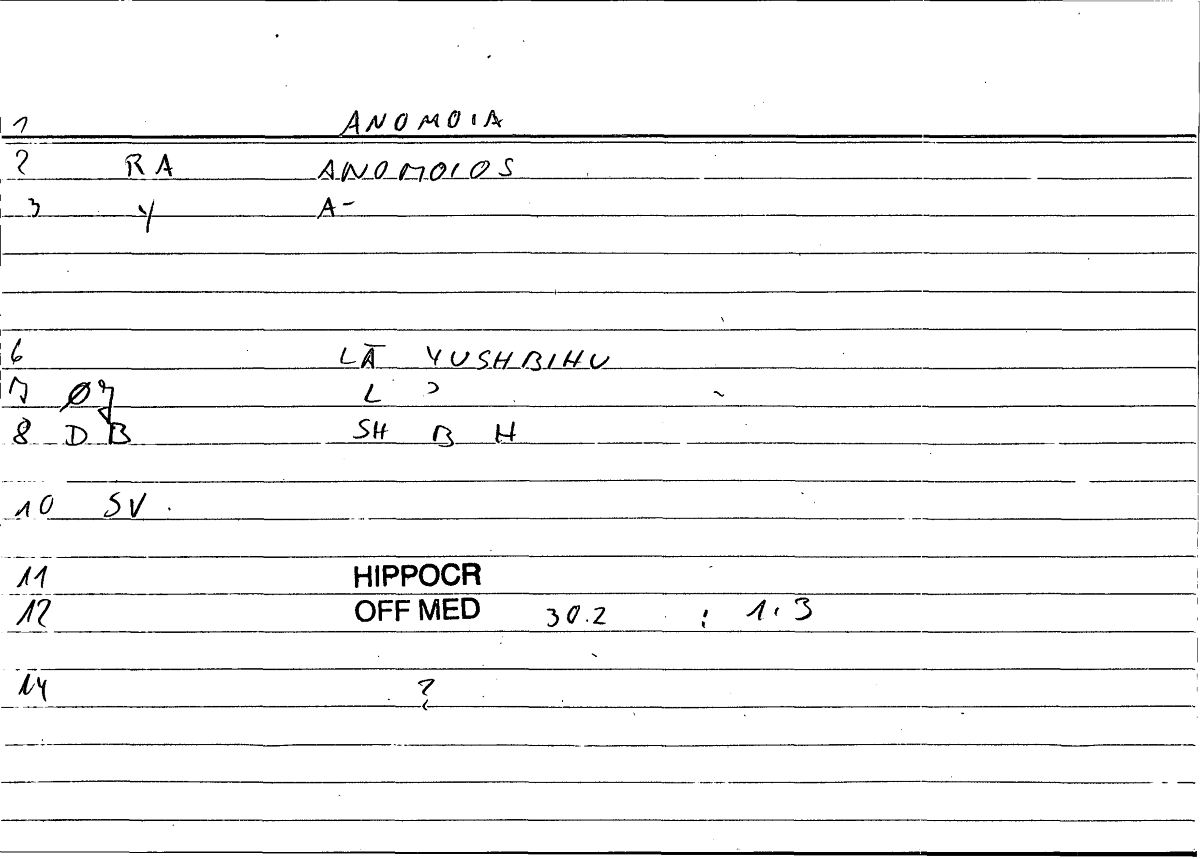 1 ANOMOIA
2 RA ANOMOIOS
3 Y A-
6 LĀ YUSHBIHU
7 L ɔ
8 DB SH B H
10 SV.
11 HIPPOCR
12 OFF MED 30.2 : 1.3
14 ?